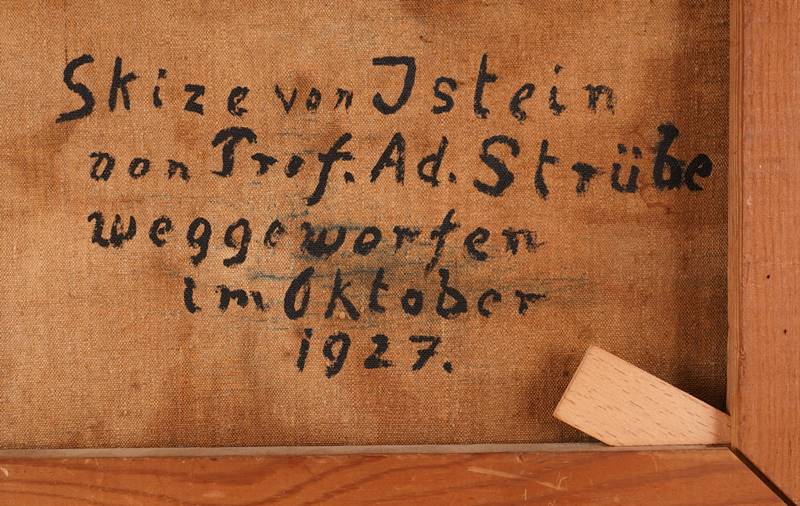 Skize von Istein
von Prof. Ad. Strübe
weggeworfen
im Oktober
1927.